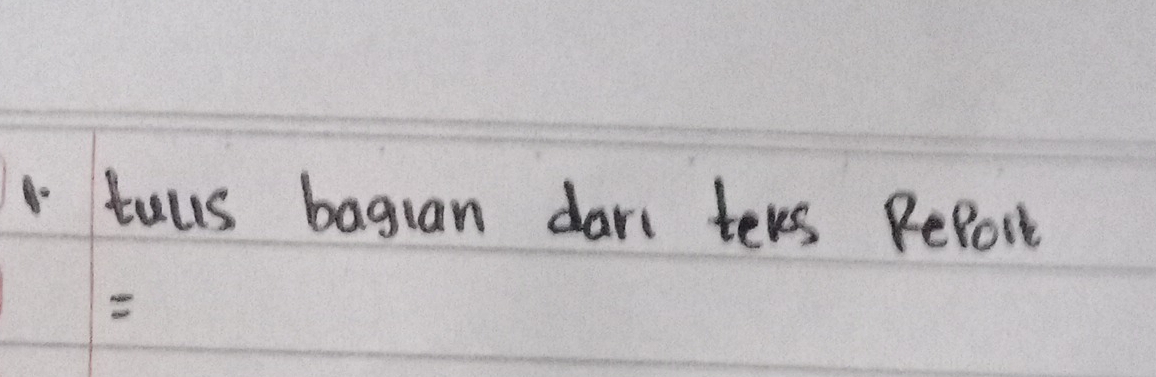 1. tulis bagian dari teks Report
=